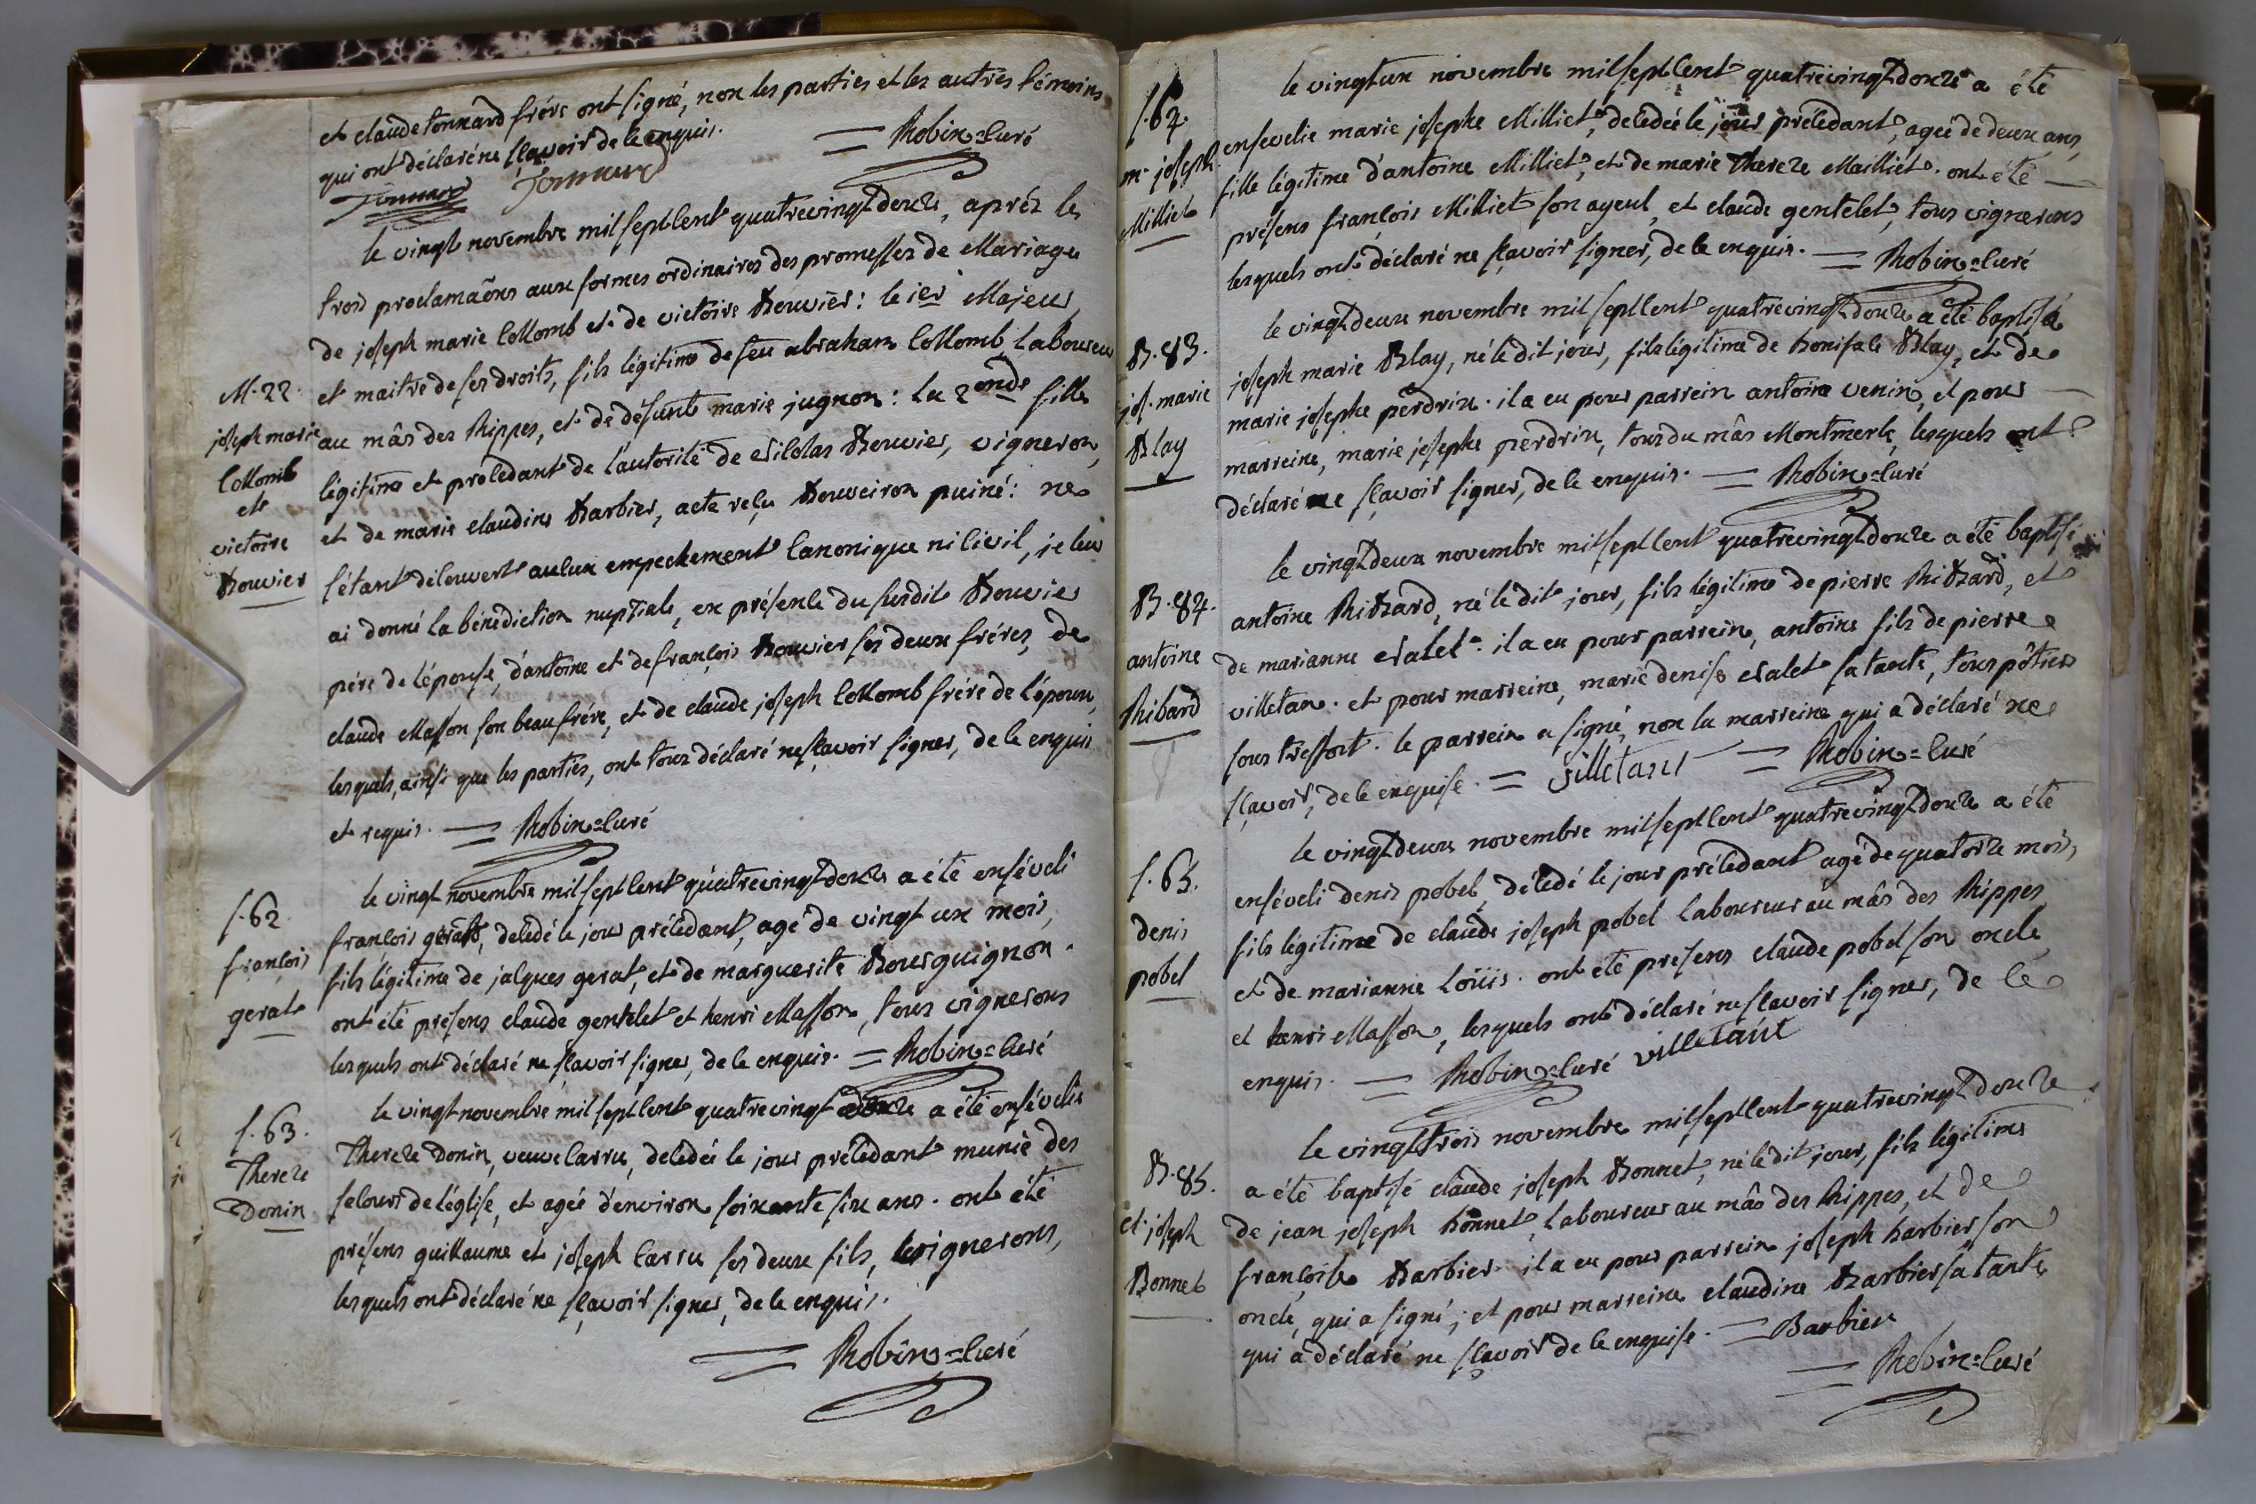 et claude tonnard frére ont signé, non les parties et les autres témoins
qui ont déclaré ne sçavoir de ce enquis. = Robin=curé
Tonnard Tonnard
le vingt novembre mil sept cent quatrevingt douze, aprés les
trois proclamaôns aux formes ordinaires des promesses de Mariage
de joseph marie Collomb et de victoire Bouvier: le ier Majeur
et maitre de ses droits, fils légitime de feu abraham Collomb Laboureur
au mâs des Rippes, et de défunte marie jugnon: La 2onde fille
légitime et procédant de l'autorité de Nicolas Bouvier, vigneron,
et de marie claudine Barbier, acte reçu Bouveiron puiné: ne
s'étant découvert aucun empechement Canonique ni civil, je leur
ai donné la bénédiction nuptiale, en présence du susdit Bouvier
pére de l'épouse, d'antoine et de françois Bouvier ses deux fréres, de
claude Masson son beau frére, et de claude joseph Collomb frére de l'époux,
lesquels, ainsi que les parties, ont tous déclaré ne sçavoir signer, de ce enquis
et requis. = Robin=curé
M. 22.
joseph marie
Collomb
et
victoire
Bouvier
le vingt novembre mil sept cent quatrevingt douze a été enséveli
françois gerat, décédé le jour précédant, agé de vingt un mois,
fils légitime de jacques gerat, et de marguerite Bourguignon.
ont été présens claude gentelet et henri Masson, tous vignerons
lesquels ont déclaré ne sçavoir signer, de ce enquis. = Robin=curé
s. 62
françois
gerat
le vingt novembre mil sept cent quatrevingt douze a été ensévelie
Thereze Donin, veuve Carru, décédée le jour précédant munie des
secours de l'église, et agée d'environ soixante six ans. ont été
présens guillaume et joseph Carru ses deux fils, vignerons,
lesquels ont déclaré ne sçavoir signer, de ce enquis.
= Robin=curé
s. 63.
Thereze
Donin
le vingt un novembre mil sept cent quatrevingt douze a été
ensevelie marie josephe Milliet, décédée le jour précédant, agée de deux ans,
fille légitime d'antoine Milliet, et de marie Thereze Mailliet. ont été
présens françois Milliet son ayeul, et claude gentelet, tous vignerons
lesquels ont déclaré ne sçavoir signer, de ce enquis. = Robin=curé
s. 64.
me joseph
Milliet
le vingt deux novembre mil sept cent quatrevingt douze a été baptisé
joseph marie Blay, né ledit jour, fils légitime de Boniface Blay, et de
marie josephe perdrix. il a eu pour parrein antoine venin, et pour
marreine, marie josephe perdrix, tous du mâs Montmerle, lesquels ont
déclaré ne sçavoir signer, de ce enquis. = Robin=curé
B. 83.
jos. marie
Blay
le vingt deux novembre mil sept cent quatrevingt douze a été baptisé
antoine Ribard, né ledit jour, fils légitime de pierre Ribard, et
de marianne Nalet. il a eu pour parrein, antoine fils de pierre
villetan. et pour marreine, marie denise Nalet sa tante, tous pôtiers
sous treffort. le parrein a signé, non la marreine qui a déclaré ne
sçavoir, de ce enquise. = villetant = Robin=curé
B. 84.
antoine
Ribard
le vingt deux novembre mil sept cent quatrevingt douze a été
enséveli denis pobel, décédé le jour précédant agé de quatorze mois,
fils légitime de claude joseph pobel Laboureur au mâs des Rippes,
et de marianne Loüis. ont été presens claude pobel son oncle,
et henri Masson, lesquels ont déclaré ne sçavoir signer, de ce
enquis. = Robin=curé villetant
s. 65.
denis
pobel
le vingt trois novembre mil sept cent quatrevingt douze
a été baptisé claude joseph Bonnet, né ledit jour, fils légitime
de jean joseph bonnet, Laboureur au mâs des Rippes, et de
françoise Barbier. il a eu pour parrein joseph barbier son
oncle, qui a signé; et pour marreine claudine Barbier sa tante
qui a déclaré ne sçavoir de ce enquise. = Barbier
= Robin=curé
B. 85.
cl. joseph
Bonnet